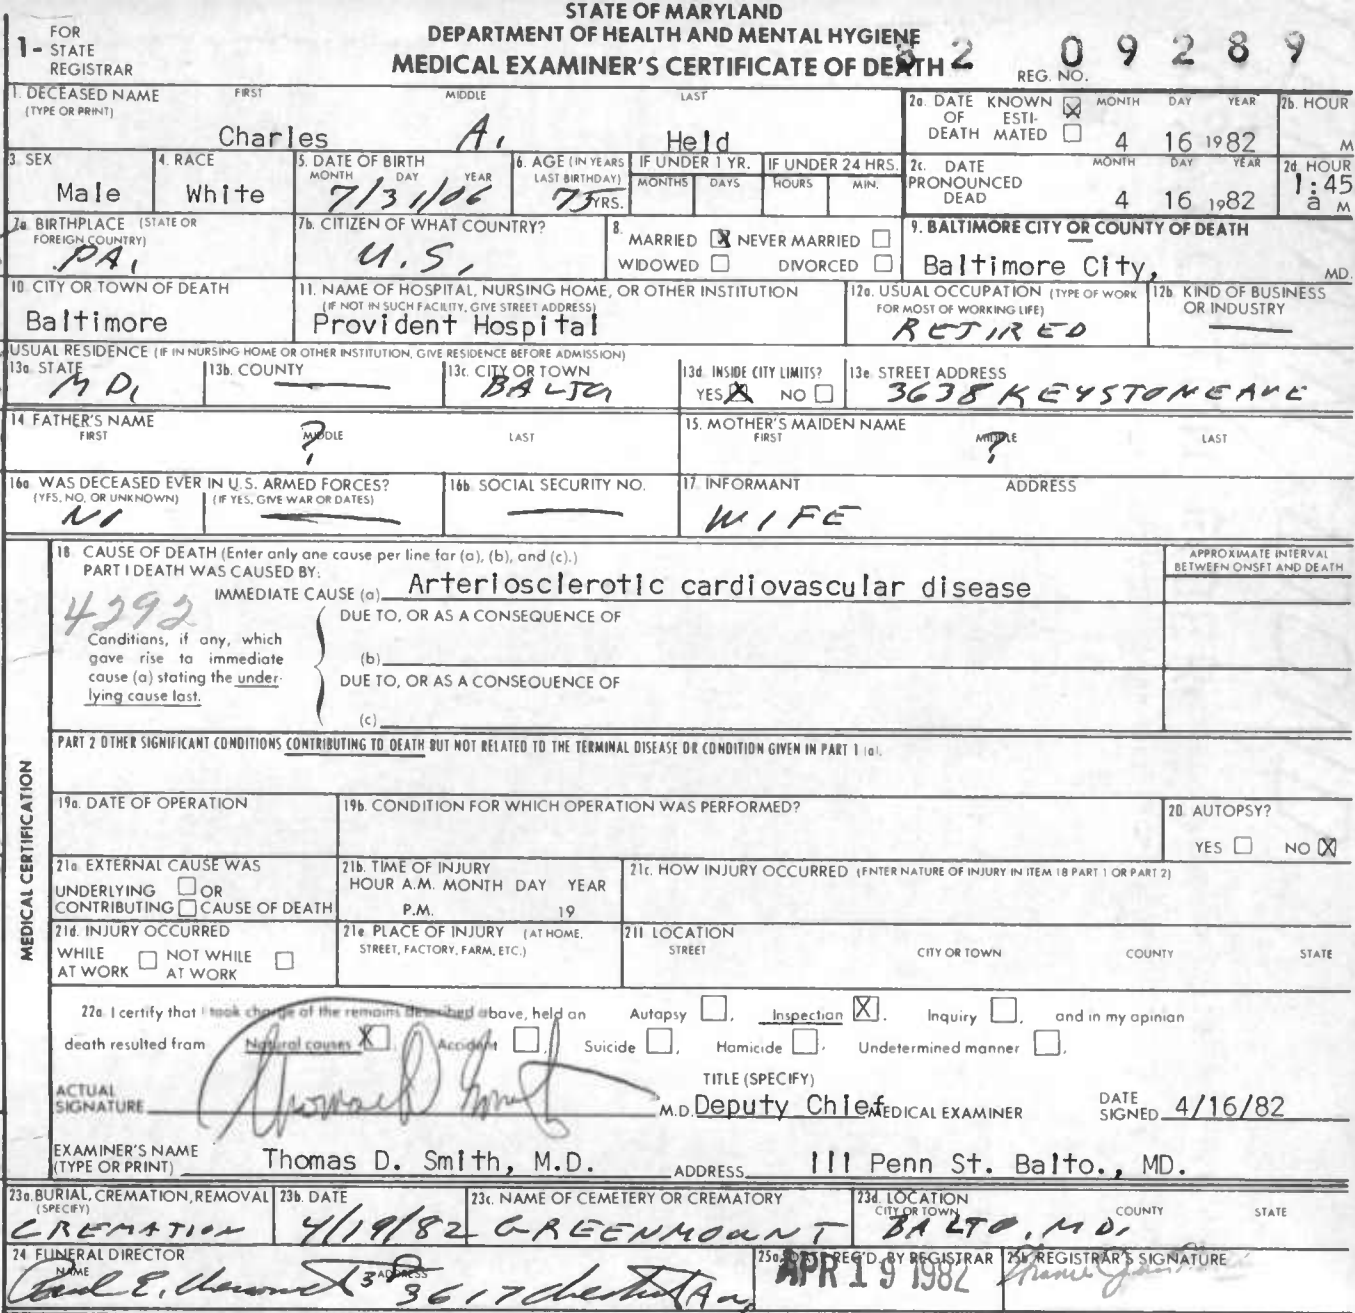 STATE OF MARYLAND
DEPARTMENT OF HEALTH AND MENTAL HYGIENE
MEDICAL EXAMINER'S CERTIFICATE OF DEATH
1- FOR STATE REGISTRAR
REG. NO. 82 09289
1. DECEASED NAME (TYPE OR PRINT) FIRST MIDDLE LAST
Charles A. Held
2a. DATE OF DEATH KNOWN ☒ ESTIMATED ☐ MONTH DAY YEAR
4 16 1982
2b. HOUR M
3. SEX
Male
4. RACE
White
5. DATE OF BIRTH MONTH DAY YEAR
7/31/06
6. AGE (IN YEARS LAST BIRTHDAY)
75 YRS.
IF UNDER 1 YR. MONTHS DAYS
IF UNDER 24 HRS. HOURS MIN.
2c. DATE PRONOUNCED DEAD MONTH DAY YEAR
4 16 1982
2d. HOUR
1:45 a M
7a. BIRTHPLACE (STATE OR FOREIGN COUNTRY)
PA.
7b. CITIZEN OF WHAT COUNTRY?
U.S.
8. MARRIED ☒ NEVER MARRIED ☐
WIDOWED ☐ DIVORCED ☐
9. BALTIMORE CITY OR COUNTY OF DEATH
Baltimore City, MD.
10. CITY OR TOWN OF DEATH
Baltimore
11. NAME OF HOSPITAL, NURSING HOME, OR OTHER INSTITUTION
(IF NOT IN SUCH FACILITY, GIVE STREET ADDRESS)
Provident Hospital
12a. USUAL OCCUPATION (TYPE OF WORK FOR MOST OF WORKING LIFE)
RETIRED
12b. KIND OF BUSINESS OR INDUSTRY
USUAL RESIDENCE (IF IN NURSING HOME OR OTHER INSTITUTION, GIVE RESIDENCE BEFORE ADMISSION)
13a. STATE
MD.
13b. COUNTY
13c. CITY OR TOWN
BALTO
13d. INSIDE CITY LIMITS?
YES ☒ NO ☐
13e. STREET ADDRESS
3638 KEYSTONE AVE
14. FATHER'S NAME FIRST MIDDLE LAST
?
15. MOTHER'S MAIDEN NAME FIRST MIDDLE LAST
?
16a. WAS DECEASED EVER IN U.S. ARMED FORCES?
(YES, NO, OR UNKNOWN) (IF YES, GIVE WAR OR DATES)
NO
16b. SOCIAL SECURITY NO.
17. INFORMANT ADDRESS
WIFE
MEDICAL CERTIFICATION
18. CAUSE OF DEATH (Enter only one cause per line for (a), (b), and (c).)
PART I DEATH WAS CAUSED BY:
IMMEDIATE CAUSE (a) Arteriosclerotic cardiovascular disease
APPROXIMATE INTERVAL BETWEEN ONSET AND DEATH
4292
DUE TO, OR AS A CONSEQUENCE OF
Conditions, if any, which
gave rise to immediate
cause (a) stating the under-
lying cause last.
(b)
DUE TO, OR AS A CONSEQUENCE OF
(c)
PART 2 OTHER SIGNIFICANT CONDITIONS CONTRIBUTING TO DEATH BUT NOT RELATED TO THE TERMINAL DISEASE OR CONDITION GIVEN IN PART 1 (a).
19a. DATE OF OPERATION
19b. CONDITION FOR WHICH OPERATION WAS PERFORMED?
20. AUTOPSY?
YES ☐ NO ☒
21a. EXTERNAL CAUSE WAS
UNDERLYING ☐ OR
CONTRIBUTING ☐ CAUSE OF DEATH
21b. TIME OF INJURY
HOUR A.M. MONTH DAY YEAR
P.M. 19
21c. HOW INJURY OCCURRED (ENTER NATURE OF INJURY IN ITEM 18 PART 1 OR PART 2)
21d. INJURY OCCURRED
WHILE AT WORK ☐ NOT WHILE AT WORK ☐
21e. PLACE OF INJURY (AT HOME, STREET, FACTORY, FARM, ETC.)
21f. LOCATION
STREET CITY OR TOWN COUNTY STATE
22a. I certify that I took charge of the remains described above, held an Autopsy ☐, Inspection ☒, Inquiry ☐, and in my opinion
death resulted from Natural causes ☒, Accident ☐, Suicide ☐, Homicide ☐, Undetermined manner ☐.
ACTUAL SIGNATURE Thomas D. Smith M.D.
TITLE (SPECIFY)
Deputy Chief MEDICAL EXAMINER
DATE SIGNED 4/16/82
EXAMINER'S NAME (TYPE OR PRINT) Thomas D. Smith, M.D.
ADDRESS 111 Penn St. Balto., MD.
23a. BURIAL, CREMATION, REMOVAL (SPECIFY)
CREMATION
23b. DATE
4/19/82
23c. NAME OF CEMETERY OR CREMATORY
GREENMOUNT
23d. LOCATION CITY OR TOWN COUNTY STATE
BALTO, MD.
24. FUNERAL DIRECTOR
NAME ADDRESS
Paul E. 3617
25a. DATE REC'D. BY REGISTRAR
APR 19 1982
25b. REGISTRAR'S SIGNATURE